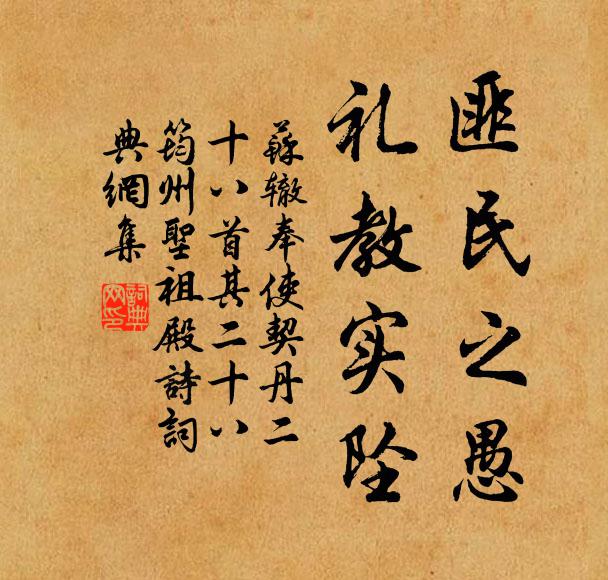 匪民之愚
礼教实坠
蘇辙奉使契丹二
十八首其二十八
筠州聖祖殿詩詞
典網集
詞典網印